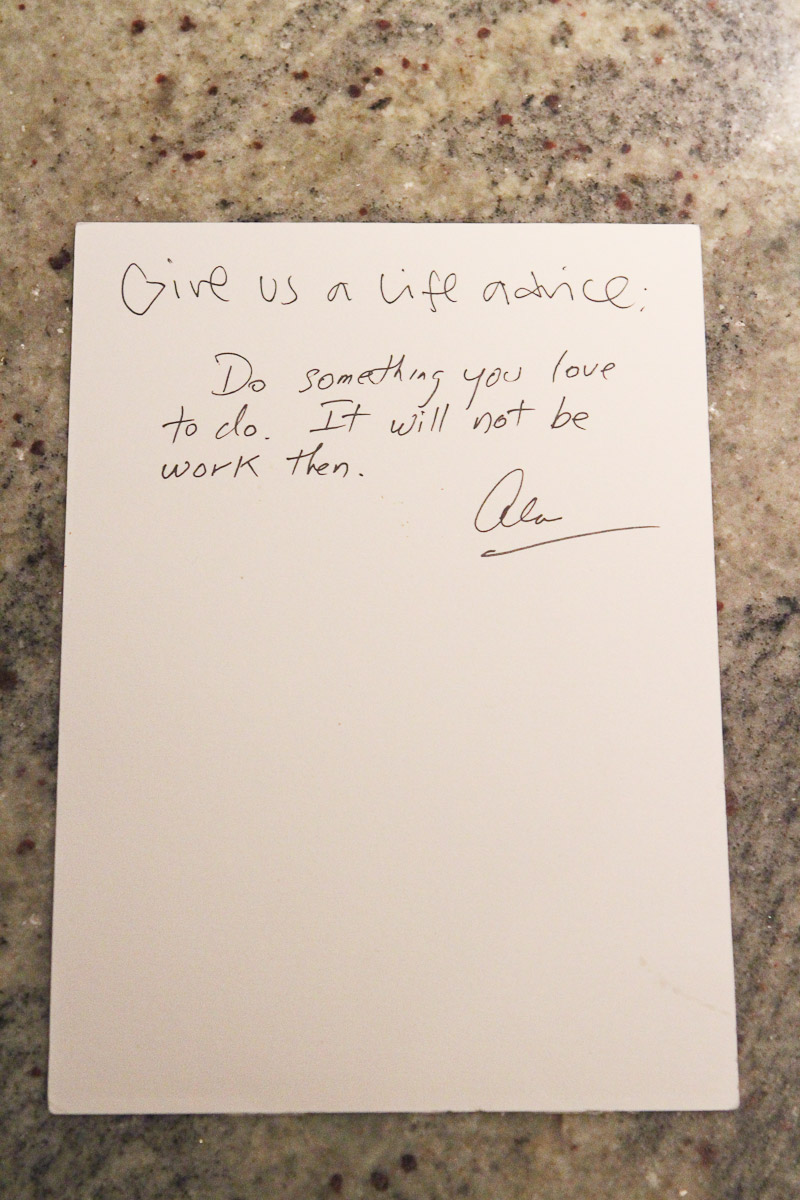 Give us a life advice:
Do something you love
to do. It will not be
work then.